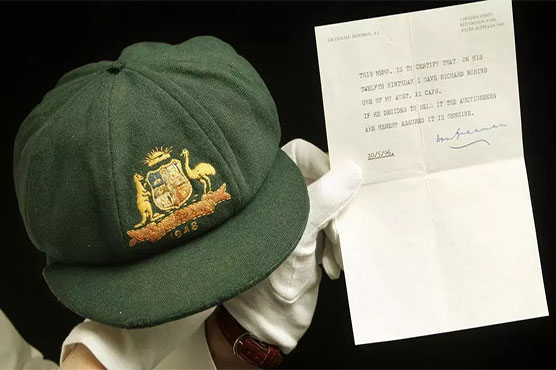 1948
SIR DONALD BRADMAN, A.C.
2 HOLDEN STREET
KENSINGTON PARK
SOUTH AUSTRALIA 5068
THIS MEMO. IS TO CERTIFY THAT ON HIS
TWELFTH BIRTHDAY I GAVE RICHARD ROBINS
ONE OF MY AUST. XI CAPS.
IF HE DECIDES TO SELL IT THE AUCTIONEERS
ARE HEREBY ASSURED IT IS GENUINE.
Don Bradman
20/5/96.